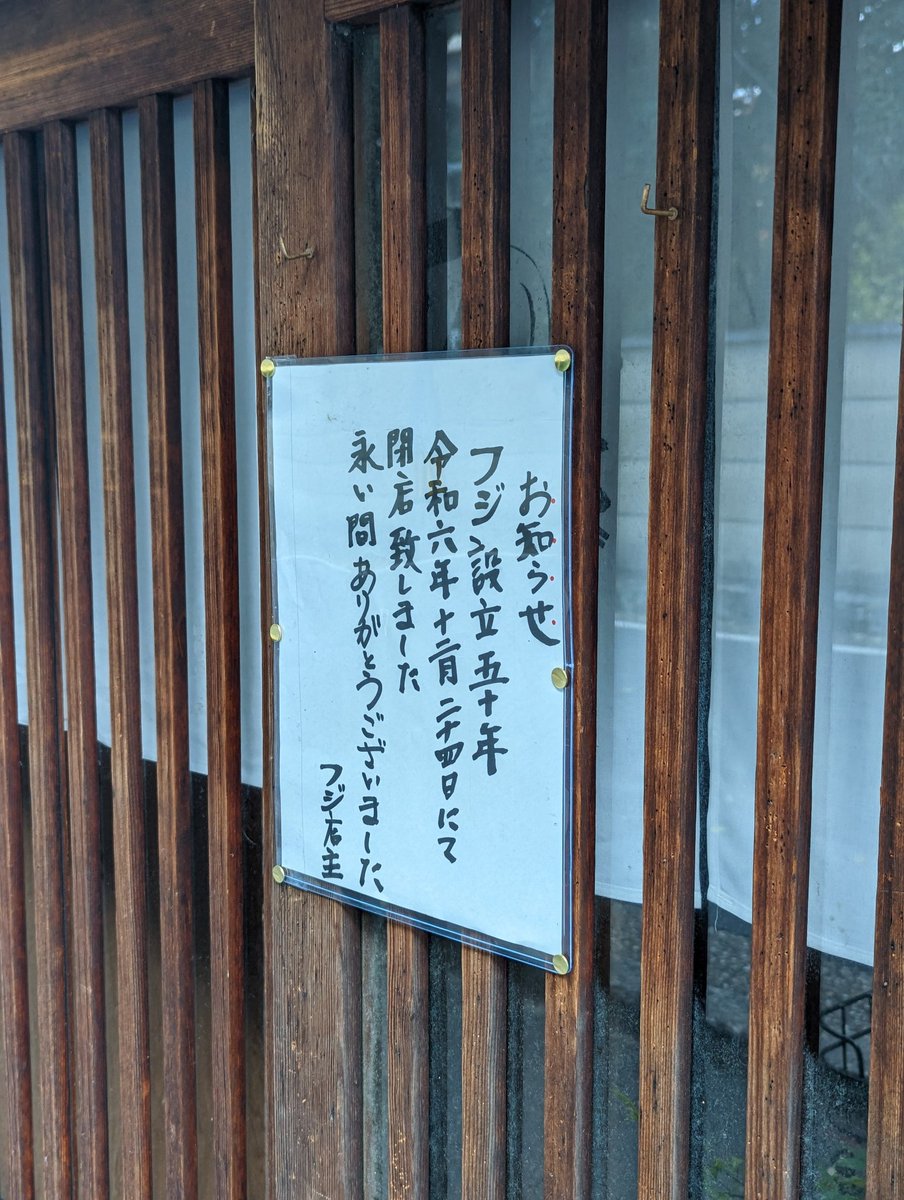 お知らせ
フジ設立五十年
令和六年十二月二十四日にて
閉店致しました
永い間ありがとうございました、
フジ店主